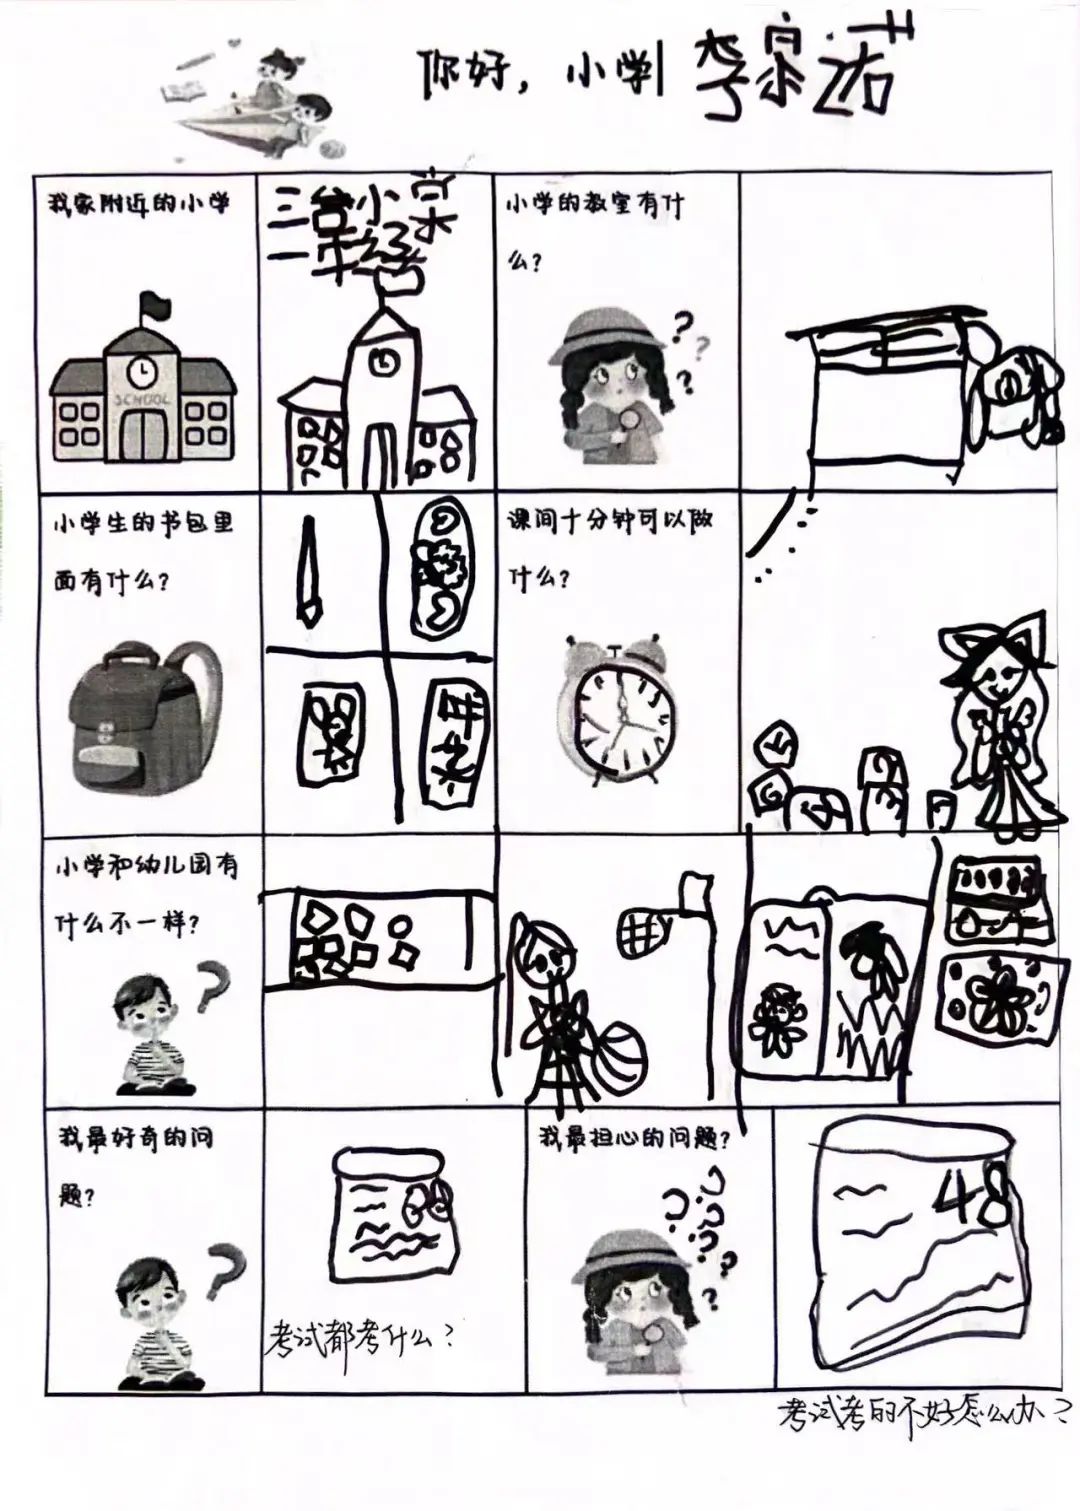 你好，小学
我家附近的小学
SCHOOL
小学的教室有什
么？
小学生的书包里
面有什么？
课间十分钟可以做
什么？
小学和幼儿园有
什么不一样？
我最好奇的问
题？
考试都考什么？
我最担心的问题？
48
考试考的不好怎么办？